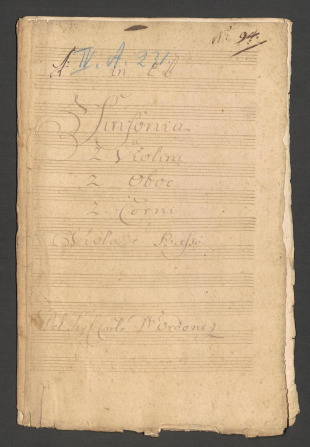 No 94.
IV. A. 231
in
Sinfonia
2 Violini
2 Oboe
2 Corni
Viola e Basso
Del Sig Carlo D'Ordonez